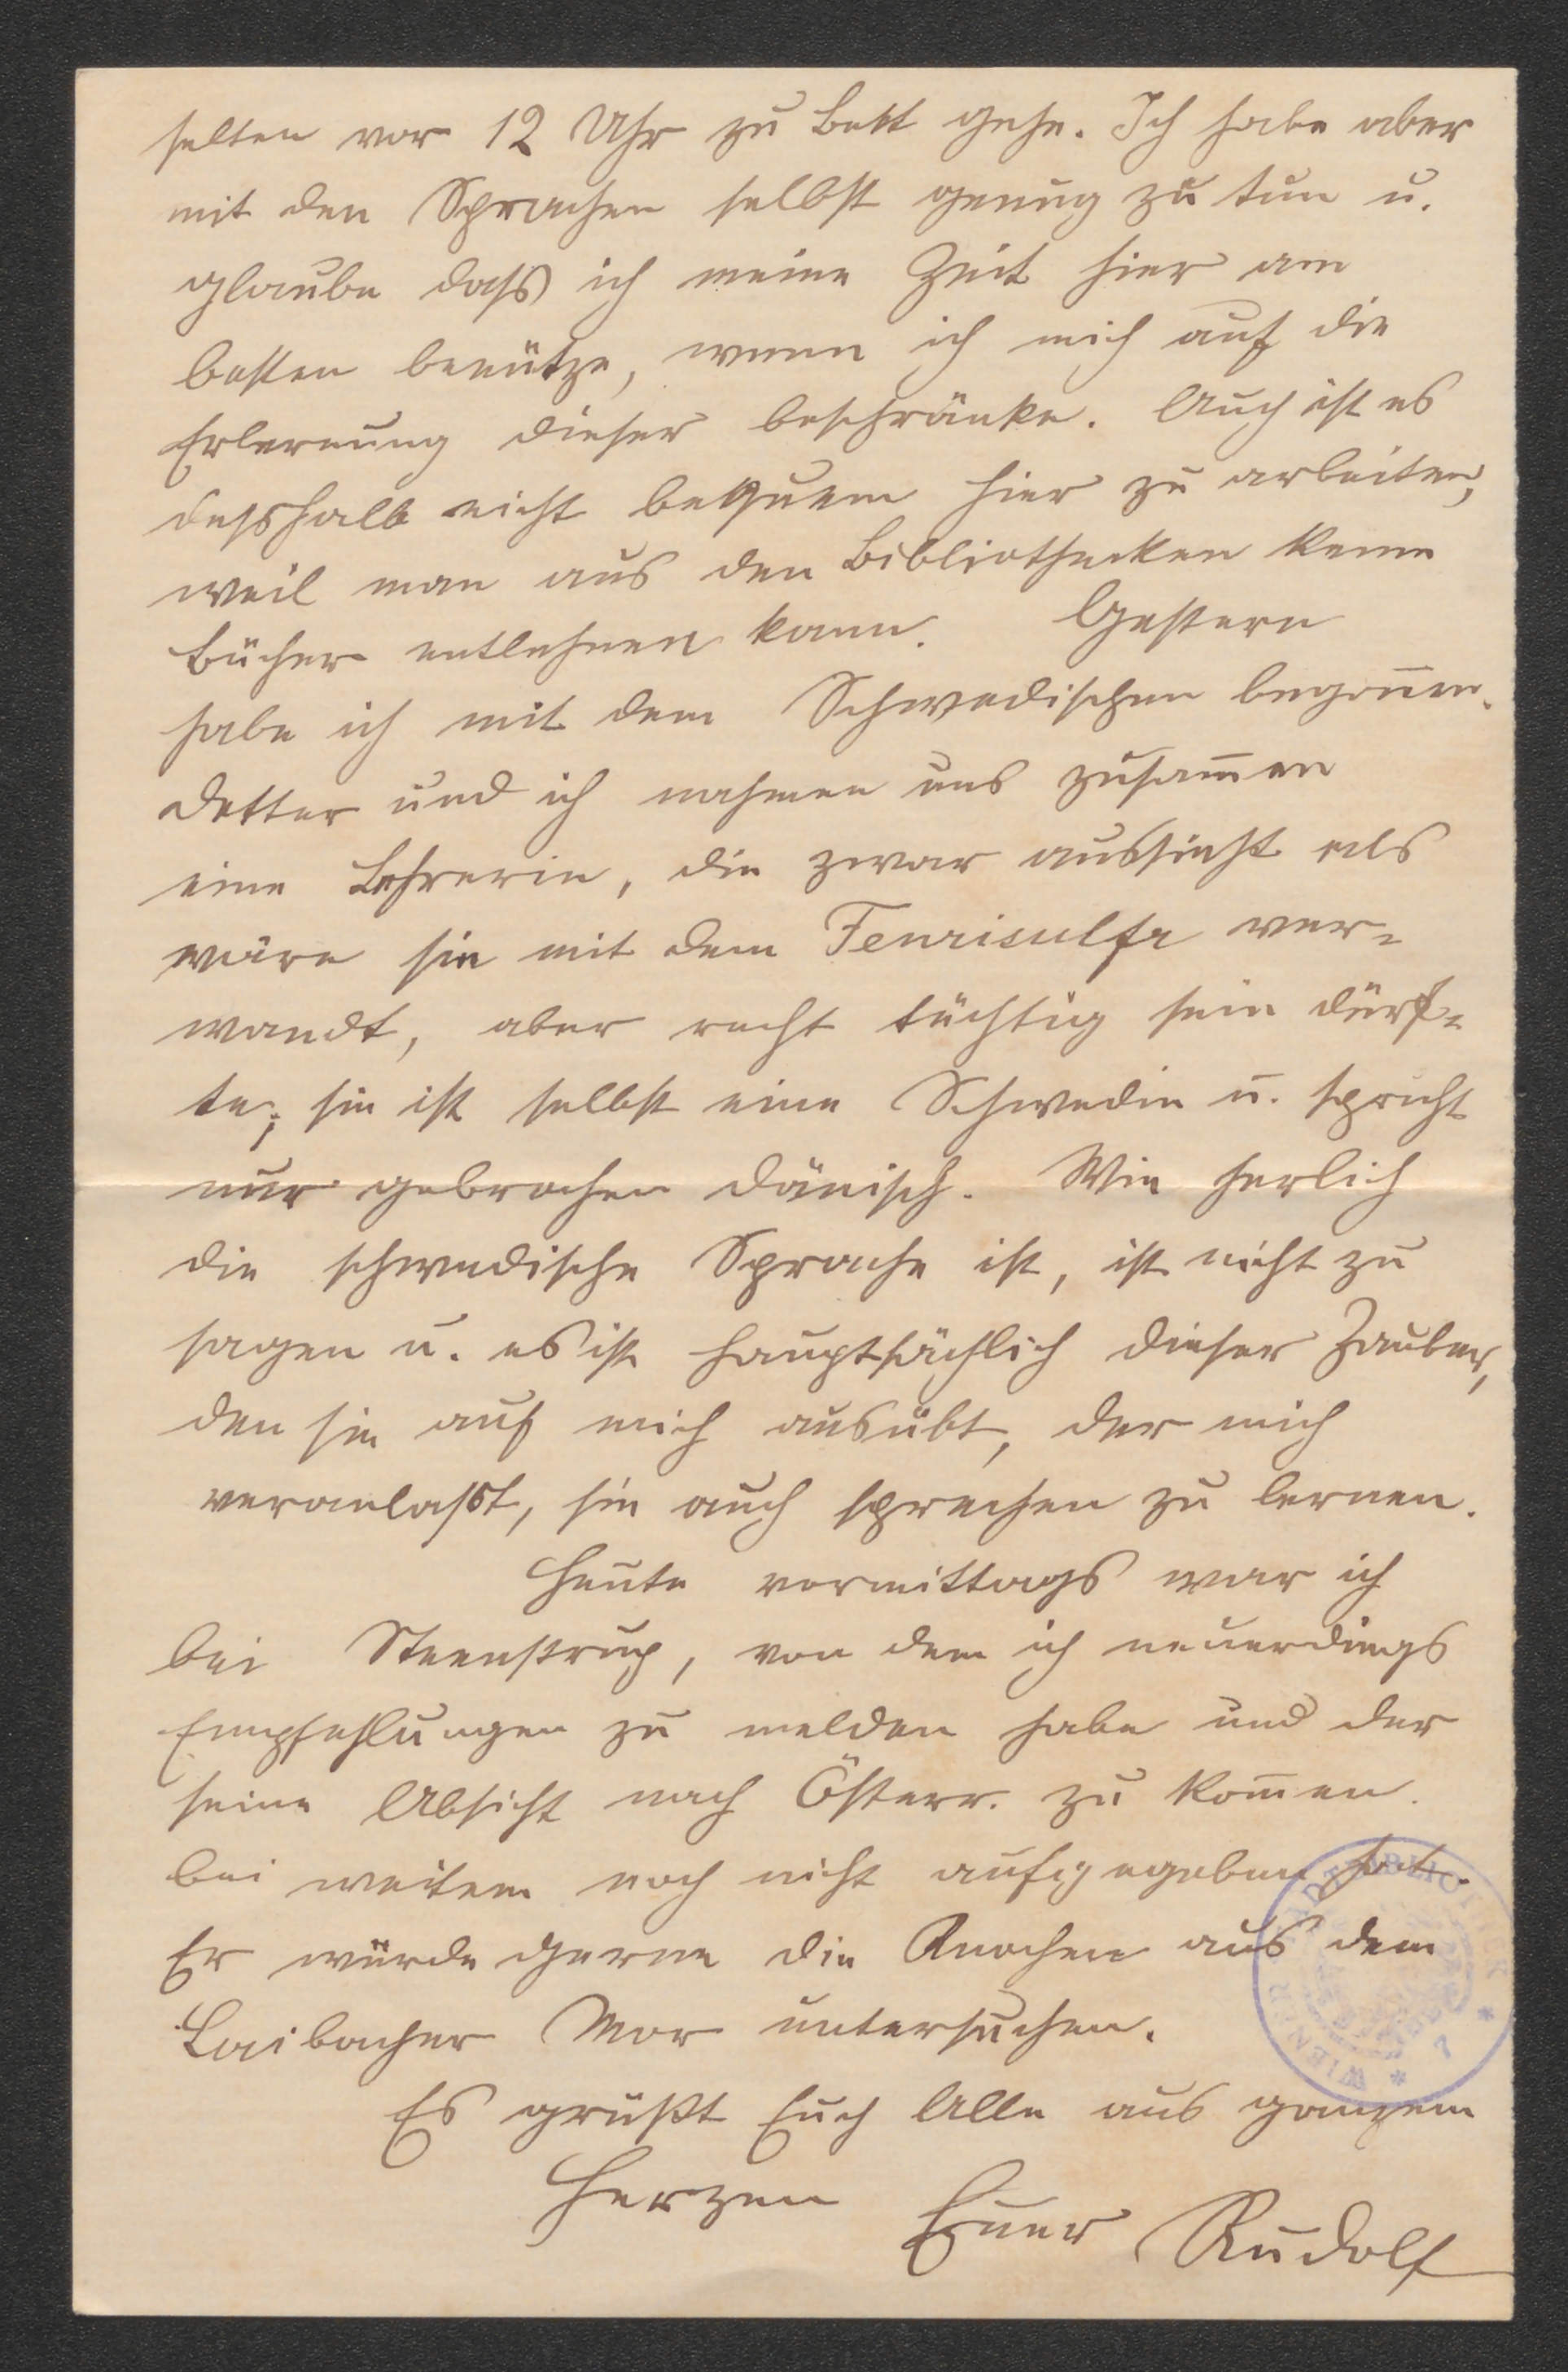 selten vor 12 Uhr zu Bett gehe. Ich habe aber
mit den Sprachen selbst genug zu tun u.
glaube dass ich meine Zeit hier am
besten benütze, wenn ich mich auf die
Erlernung dieser beschränke. Auch ist es
desshalb nicht bequem hier zu arbeiten,
weil man aus den Bibliotheken keine
Bücher entlehnen kann. Gestern
habe ich mit dem Schwedischen begon̅en.
Detter und ich nahmen uns zusam̅en
eine Lehrerin, die zwar aussieht als
wäre sie mit dem Fenrisulfr ver-
wandt, aber recht tüchtig sein dürf-
te; sie ist selbst eine Schwedin u. spricht
nur gebrochen dänisch. Wie herlich
die schwedische Sprache ist, ist nicht zu
sagen u. es ist hauptsächlich dieser Zauber,
den sie auf mich ausübt, der mich
veranlasst, sie auch sprechen zu lernen.
Heute vormittags war ich
bei Steenstrup, von dem ich neuerdings
Empfehlungen zu melden habe und der
seine Absicht nach Österr. zu kom̅en
bei weitem noch nicht aufgegeben hat.
Er würde gerne die Knochen aus dem
Laibacher Mor untersuchen.
Es grüßt Euch Alle aus ganzem
Herzen Euer Rudolf
WIENER STADTBIBLIOTHEK
* 7 *